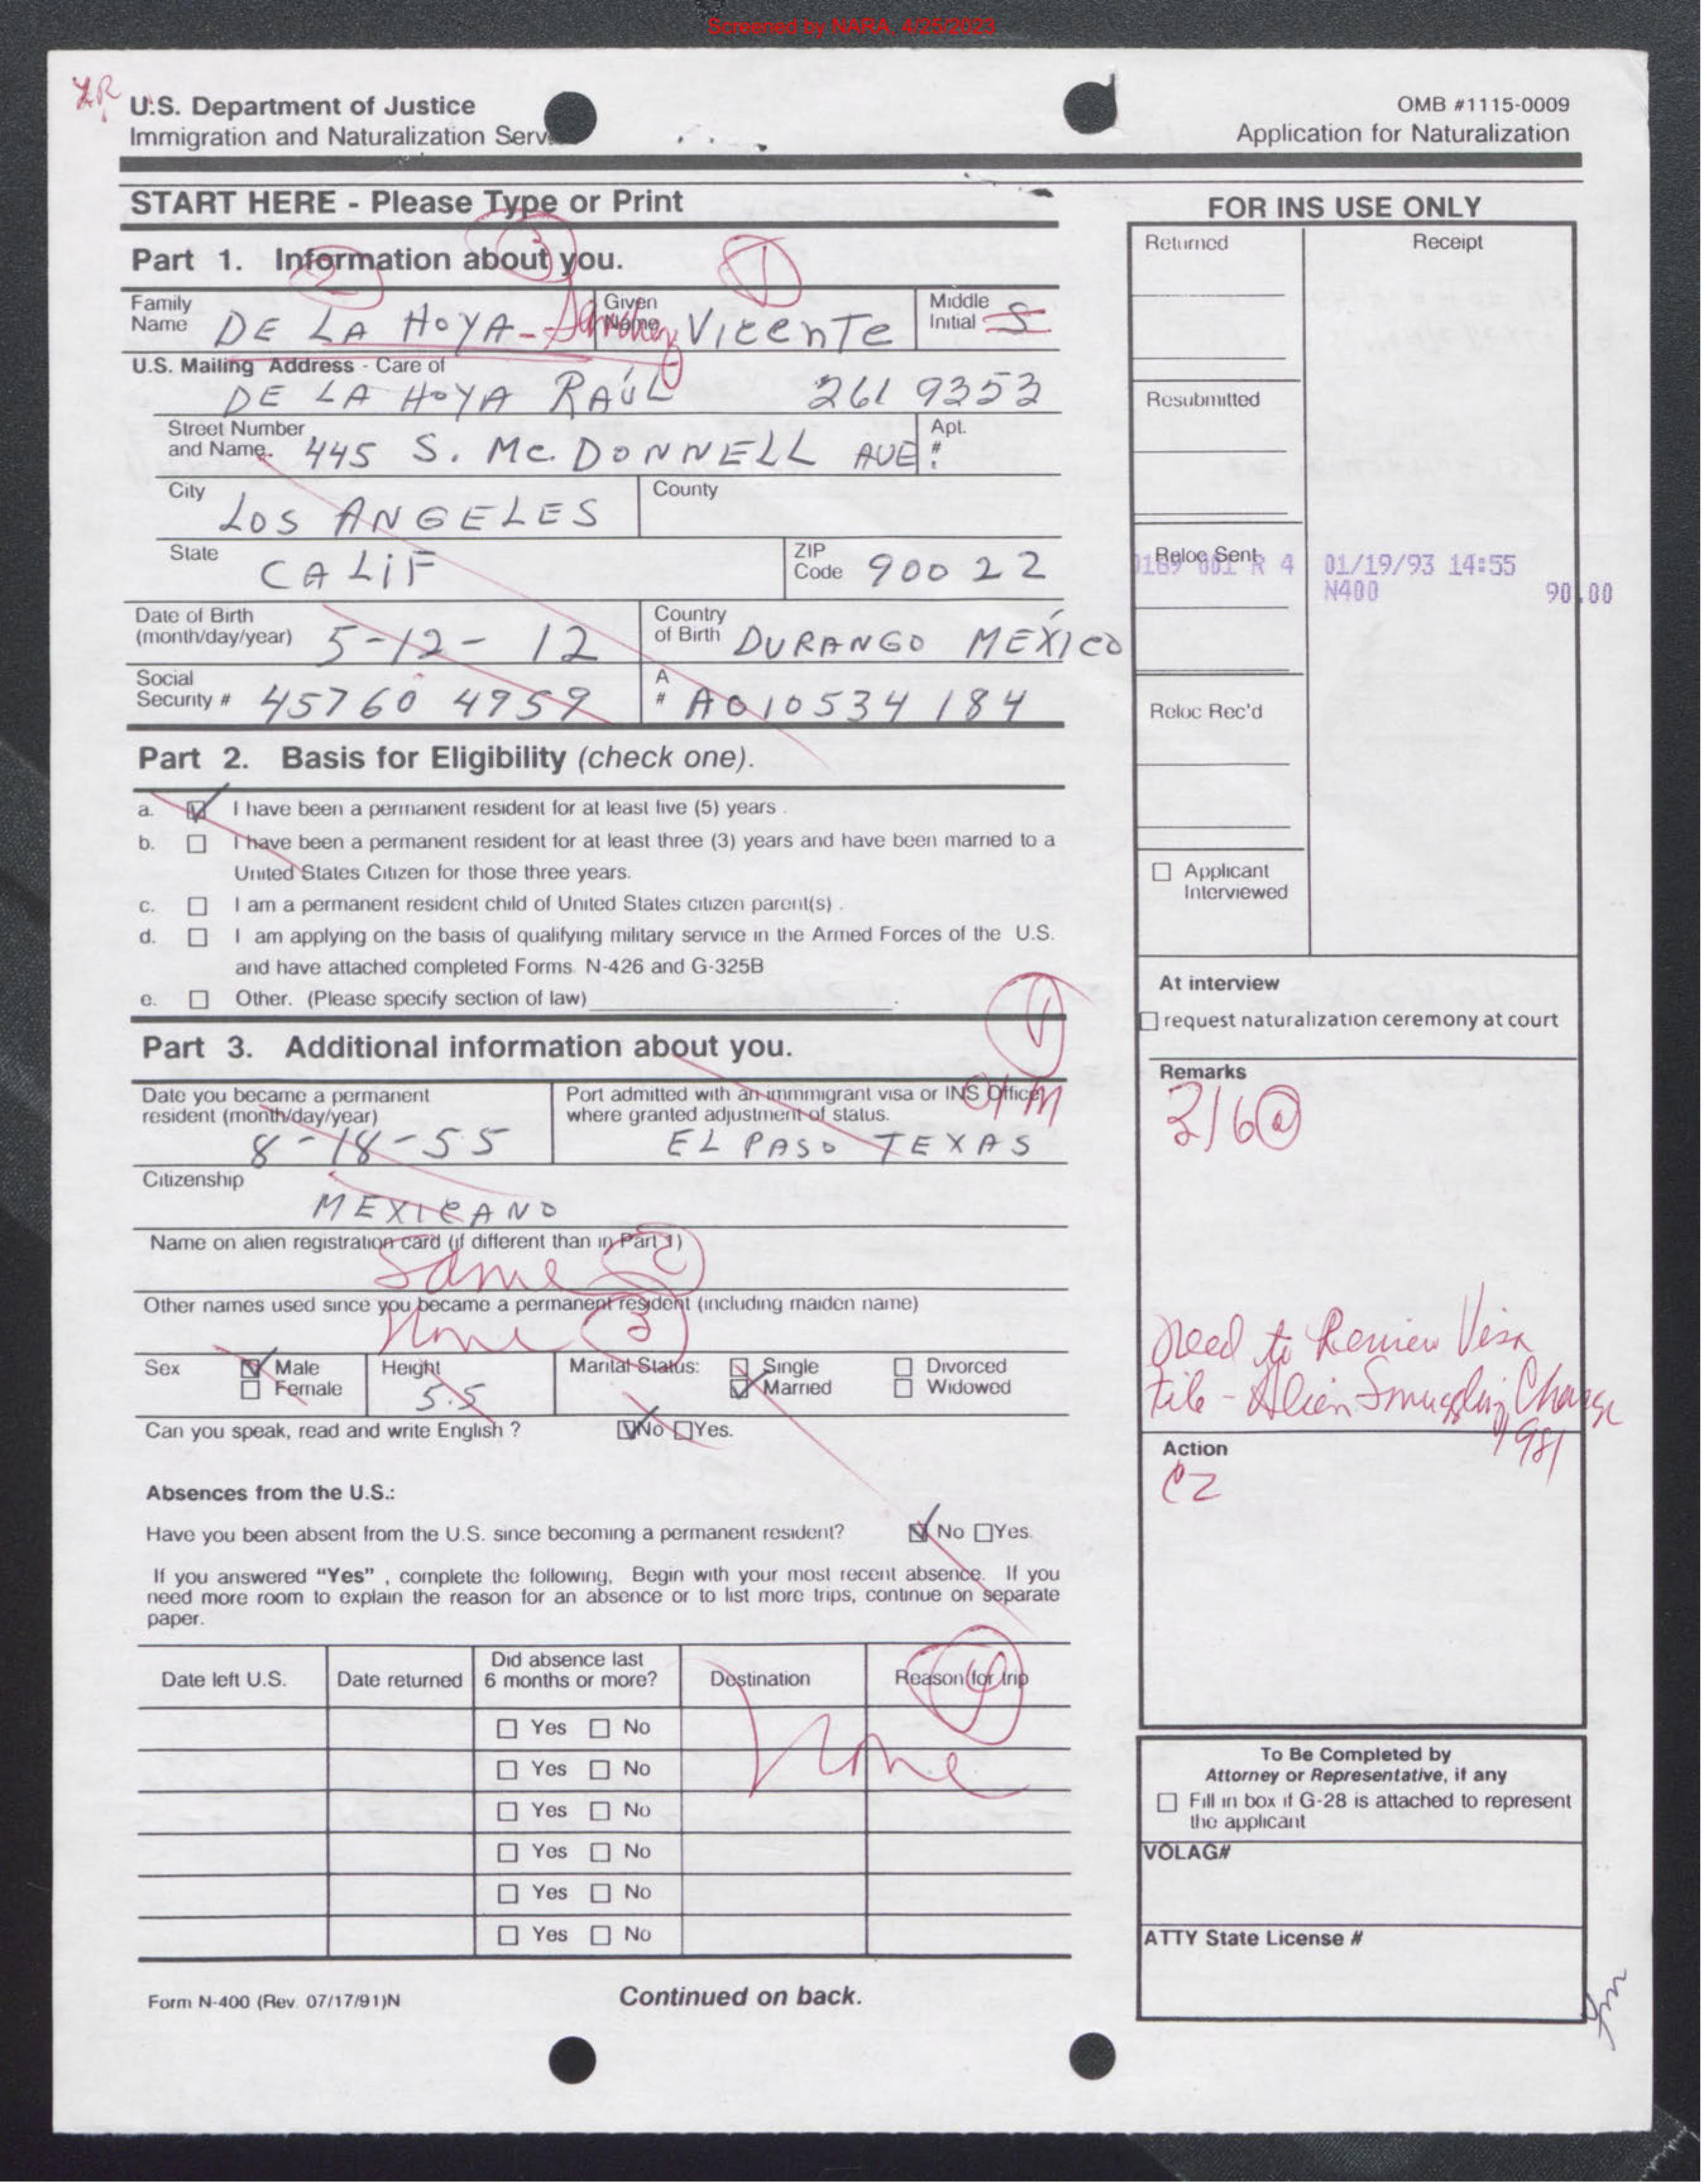 Screened by NARA, 4/25/2023
U.S. Department of Justice
Immigration and Naturalization Serv
OMB #1115-0009
Application for Naturalization
START HERE - Please Type or Print
FOR INS USE ONLY
Part 1. Information about you.
2 3 1
Family Name DE LA HOYA-Sanchez
Given Name Vicente
Middle Initial S
U.S. Mailing Address - Care of
DE LA HOYA RAÚL 261 9353
Street Number and Name. 445 S. Mc. DONNELL AVE.
Apt. #
City LOS ANGELES
County
State CALIF
ZIP Code 90022
Date of Birth (month/day/year) 5-12-12
Country of Birth DURANGO MÉXICO
Social Security # 45760 4959
A # A010534184
Part 2. Basis for Eligibility (check one).
a. I have been a permanent resident for at least five (5) years .
b. I have been a permanent resident for at least three (3) years and have been married to a
United States Citizen for those three years.
c. I am a permanent resident child of United States citizen parent(s) .
d. I am applying on the basis of qualifying military service in the Armed Forces of the U.S.
and have attached completed Forms N-426 and G-325B
e. Other. (Please specify section of law)
Part 3. Additional information about you.
Date you became a permanent resident (month/day/year)
8-18-55
Port admitted with an immmigrant visa or INS Office
where granted adjustment of status.
EL PASO TEXAS
Citizenship
MEXICANO
Name on alien registration card (if different than in Part 1)
Same 2
Other names used since you became a permanent resident (including maiden name)
None 3
Sex Male Female
Height 5.5
Marital Status: Single Married Divorced Widowed
Can you speak, read and write English ? No Yes.
Absences from the U.S.:
Have you been absent from the U.S. since becoming a permanent resident? No Yes.
If you answered "Yes" , complete the following, Begin with your most recent absence. If you
need more room to explain the reason for an absence or to list more trips, continue on separate
paper.
Date left U.S. Date returned Did absence last 6 months or more? Destination Reason for trip
Yes No
None
Yes No
Yes No
Yes No
Yes No
Yes No
Form N-400 (Rev. 07/17/91)N
Continued on back.
Returned
Receipt
Resubmitted
Reloc Sent
0169 001 R 4 01/19/93 14:55
N400 90.00
Reloc Rec'd
Applicant Interviewed
At interview
request naturalization ceremony at court
Remarks
316@
need to Review Visa
file - Alien Smuggling Charge
1981
Action
C2
To Be Completed by
Attorney or Representative, if any
Fill in box if G-28 is attached to represent
the applicant
VOLAG#
ATTY State License #